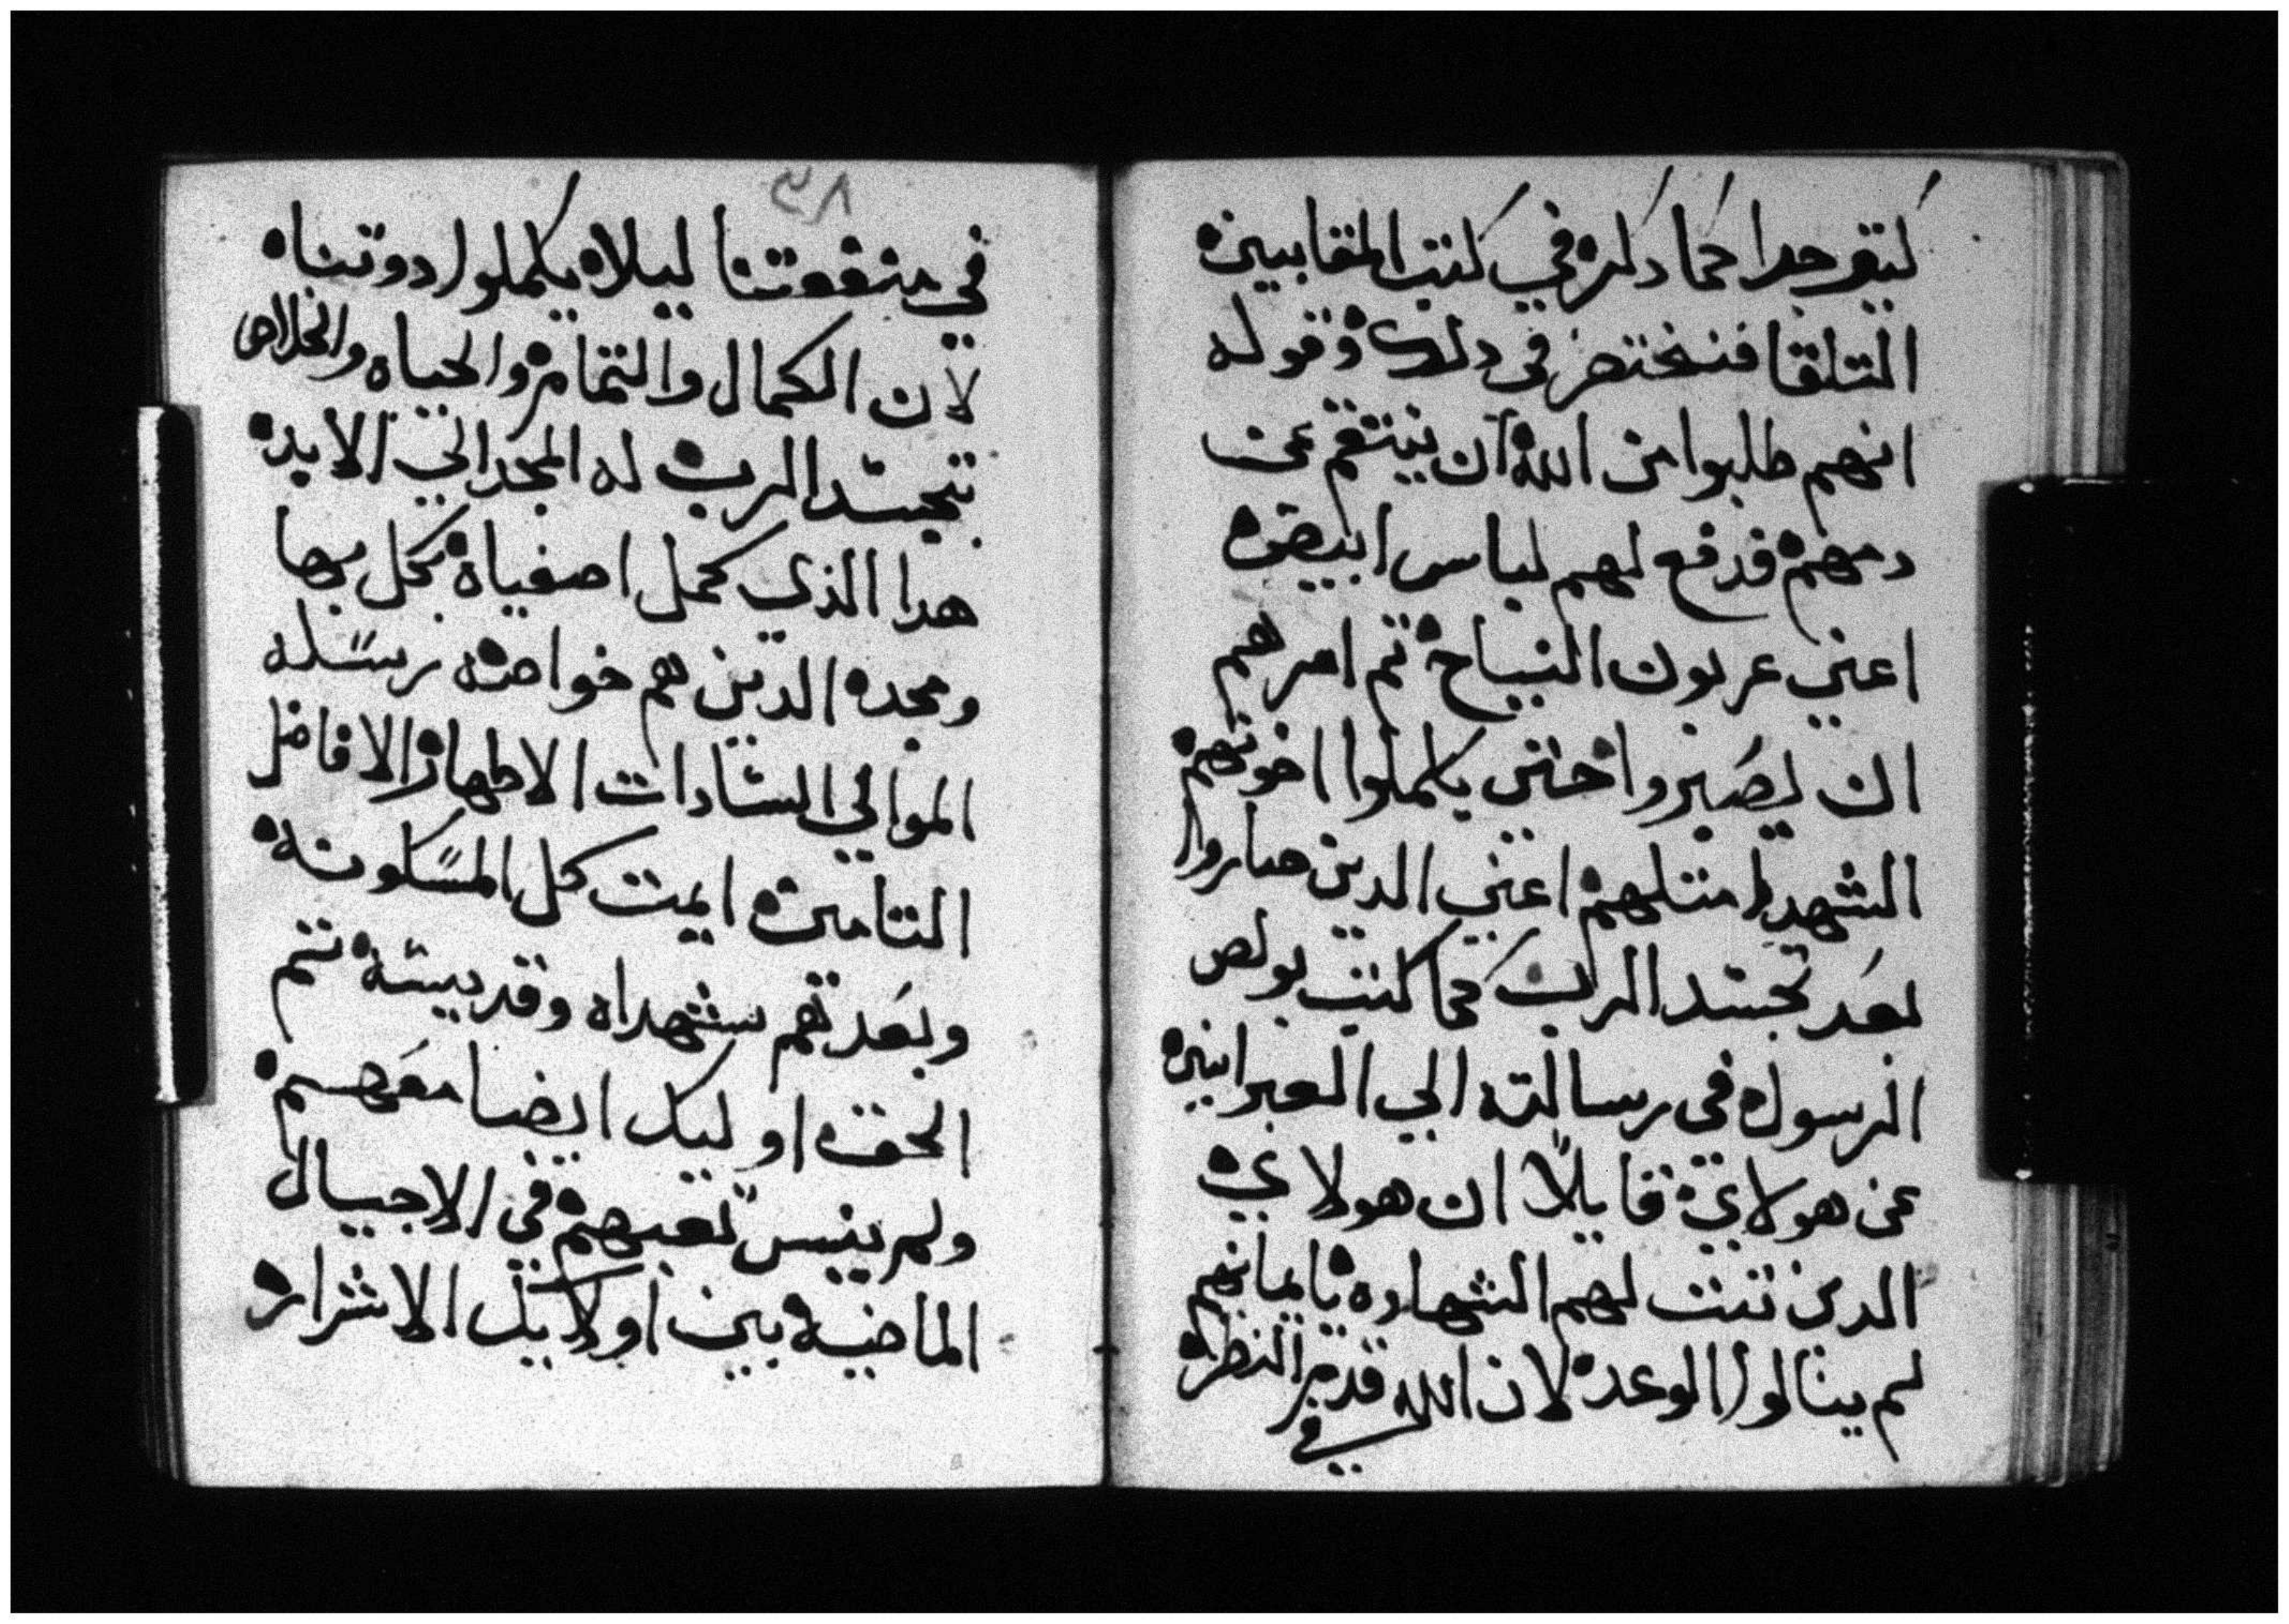 كتير جدا كما دكر في كتب المقابيين
التلته فنختصر في دلك وقوله
انهم طلبوا من الله ان ينتقم عن
دمهم فدفع لهم لباس ابيض
اعني عربون النياح تم امرهم
ان يصبروا حتي يكملوا اخوتهم
الشهدا متلهم اعني الدين صاروا
بعد تجسد الرب كما كتب بولص
الرسول في رسالته الي العبرانين
عن هولاي قايلا ان هولاي
الدين تبتت لهم الشهاده بايمانهم
لم ينالوا الوعد لان الله قدم النظر
في
٥٨
في منفعتنا ليلا يكملوا دوننا
لان الكمال والتمام والحياه والخلاص
بتجسد الرب له المجد الي الابد
هدا الذي كمل اصفياه بكل بها
ومجده الدين هم خواصه رسله
الموالي السادات الاطهار الافاضل
التامين ايمت كل المسكونه
وبعدتهم شهداه وقديسه تم
الحق اوليك ايضا معهم
ولم ينس تعبهم في الاجيال
الماضيه بين اولايك الاشرار